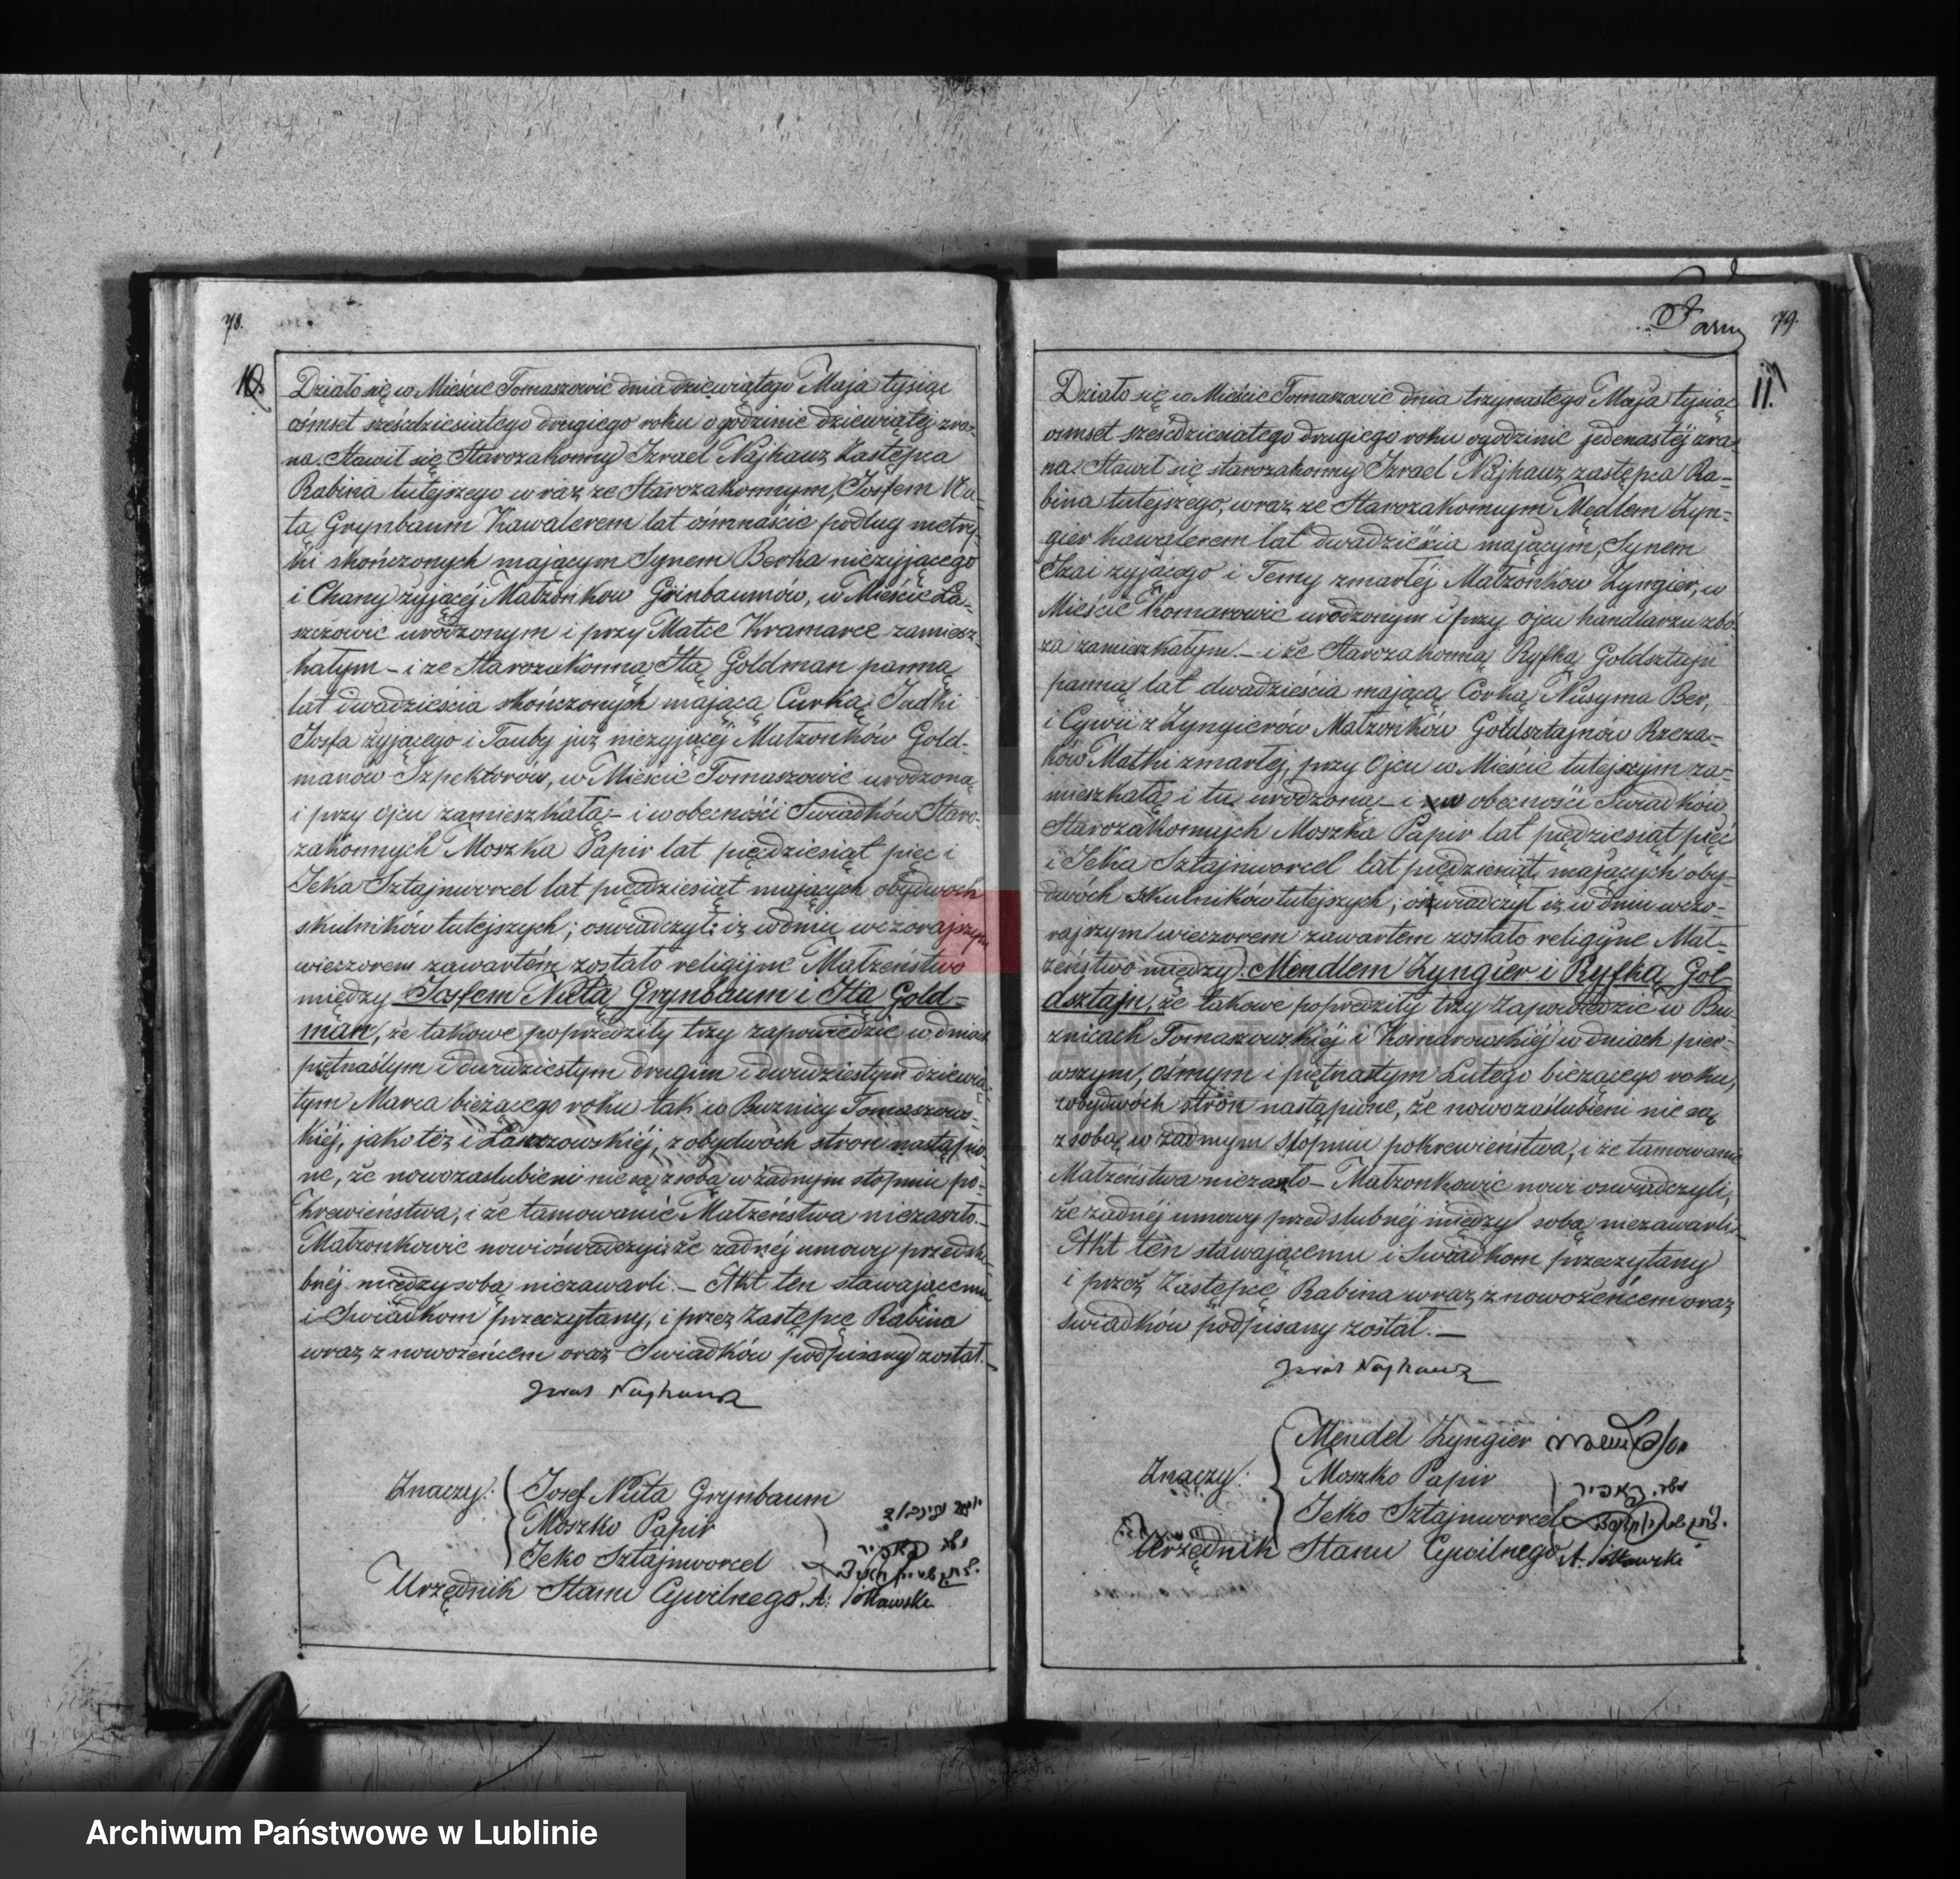 78.
10.
Działo się w Mieście Tomaszowie dnia dziewiątego Maja tysiąc
ośmset sześćdziesiątego drugiego roku o godzinie dziewiątej zra-
na. Stawił się Starozakonny Izrael Najhauz Zastępca
Rabina tutejszego wraz ze Starozakonnym, Josfem Nu-
tą Grynbaum Kawalerem lat ośmnaście podług metry-
ki skończonych mającym Synem Berka nieżyjącego
i Chany żyjącéj Małżonkow Grinbaumów, w Mieście Ła-
szczowie urodzonym i przy Matce Kramarce zamiesz-
kałym – i ze Starozakonną Itą Goldman panną
lat dwadzieścia skończonych mającą Curką Judki
Josfa żyjącego i Tauby już nieżyjącéj Małżonków Gold-
manów Szpektorów, w Mieście Tomaszowie urodzoną
i przy ojcu zamieszkałą – i w obecności Swiadków Staro-
zakonnych Moszka Papir lat pięćdziesiąt pięć i
Jcka Sztajnworcel lat pięćdziesiąt mających obydwoch
skulników tutejszych; oswiadczył: iż w dniu wczorajszym
wieczorem zawartém zostało religijne Małżeństwo
między Josfem Nutą Grynbaum i Itą Gold-
man, że takowe poprzedziły trzy zapowiedzie w dniach
piętnastym i dwudziestym drugim i dwudziestym dziewią-
tym Marca bieżącego roku tak w Buznicy Tomaszows-
kiéj, jako téż i Łaszczowskiéj, z obydwóch stron nastąpio-
ne, że nowozaslubieni nie są z sobą w żadnym stopniu po-
krewieństwa, i że tamowanié Małżeństwa niezaszło.–
Małżonkowie nowi oświadczyli: że żadnéj umowy przedslu-
bnéj między sobą niezawarli. – Akt ten stawającemu
i Swiadkom przeczytany, i przez Zastępcę Rabina
wraz z nowożeńcem oraz Swiadków podpisany został.–
Izrael Najhauz
Znaczy:
Josef Nuta Grynbaum
Moszko Papir
Jcko Sztajnworcel
Urzędnik Stanu Cywilnego.
79.
11.
Działo się w Mieście Tomaszowie dnia trzynastego Maja tysiąc
osmset sześćdziesiątego drugiego roku o godzinie jedenastéj zra-
na. Stawił się starozakonny Izrael Najhauz zastępca Ra-
bina tutejszego, wraz ze Starozakonnym Mędlem Zyn-
gier kawalerem lat dwadzieścia mającym, Synem
Szai żyjącego i Temy zmarłéj Małżonkow Zyngier, w
Mieście Komarowie urodzonym i przy ojcu handlarzu zbo-
ża zamieszkałym. – i ze Starozakonną Ryfką Goldsztajn
panną lat dwadzieścia mającą Corką Nusyma Ber,
i Cywii z Zyngierów Małżonków Goldsztajnów Rzeza-
ków Matki zmarłéj, przy Ojcu w Mieście tutejszym za-
mieszkałą i tu urodzoną – i w obecności Swiadków
Starozakonnych Moszka Papir lat pięćdziesiąt pięć
i Jcka Sztajnworcel lat pięćdziesiąt mających oby-
dwóch skulników tutejszych; oswiadczył iż w dniu wczo-
rajszym wieczorem zawartem zostało religijne Mał-
żeństwo między Mendlem Zyngier i Ryfką Gol-
dsztajn, że takowe poprzedziły trzy Zapowiedzie w Bu-
żnicach Tomaszowskiéj i Komarowskiéj w dniach pier-
wszym, ósmym i piętnastym Lutego bieżącego roku,
z obydwoch stron nastąpione, że nowozaslubieni nie są
z sobą w żadnym stopniu pokrewieństwa, i że tamowanie
Małżeństwa niezaszło – Małżonkowie nowi oswiadczyli,
że żadnéj umowy przedslubnéj między sobą niezawarli.–
Akt ten stawającemu i Swiadkom przeczytany
i przez Zastępcę Rabina wraz z nowożeńcem oraz
Swiadków podpisany został. –
Izrael Najhauz
Znaczy:
Mendel Zyngier
Moszko Papir
Jcko Sztajnworcel
Urzędnik Stanu Cywilnego
Archiwum Państwowe w Lublinie